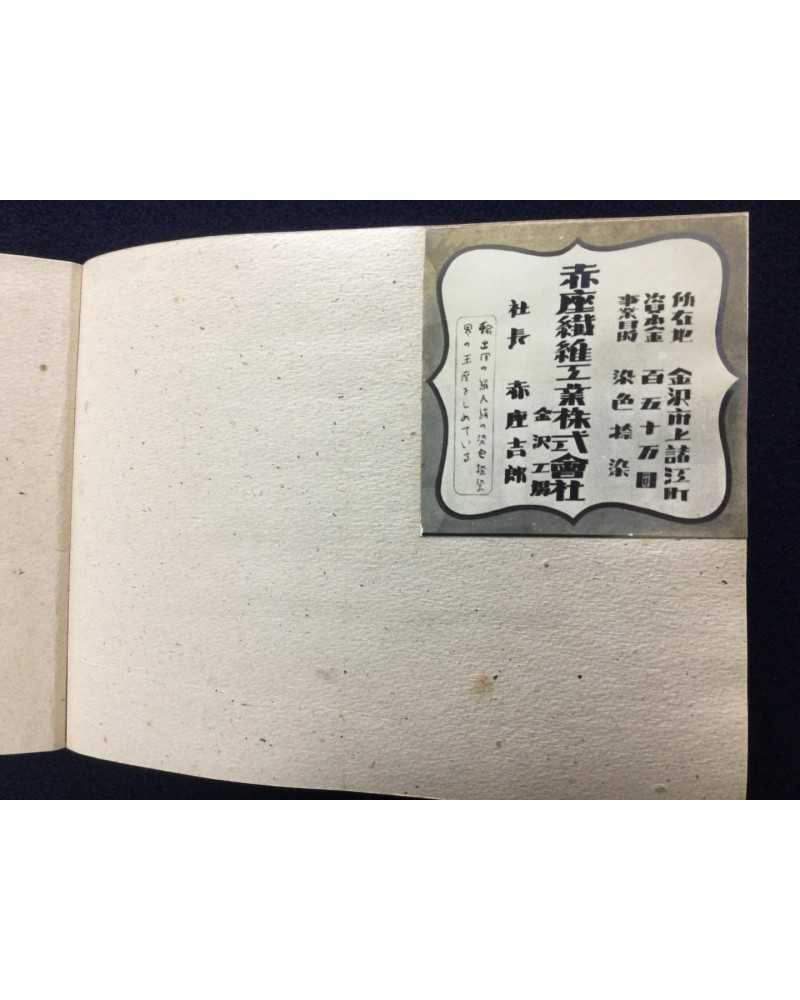 所在地 金沢市上諸江町
資本金 百五十万円
事業目的 染色捺染
赤座繊維工業株式會社
金沢工場
社長 赤座吉郎
輸出用の絹人絹の染色捺染
界の王座をしめている